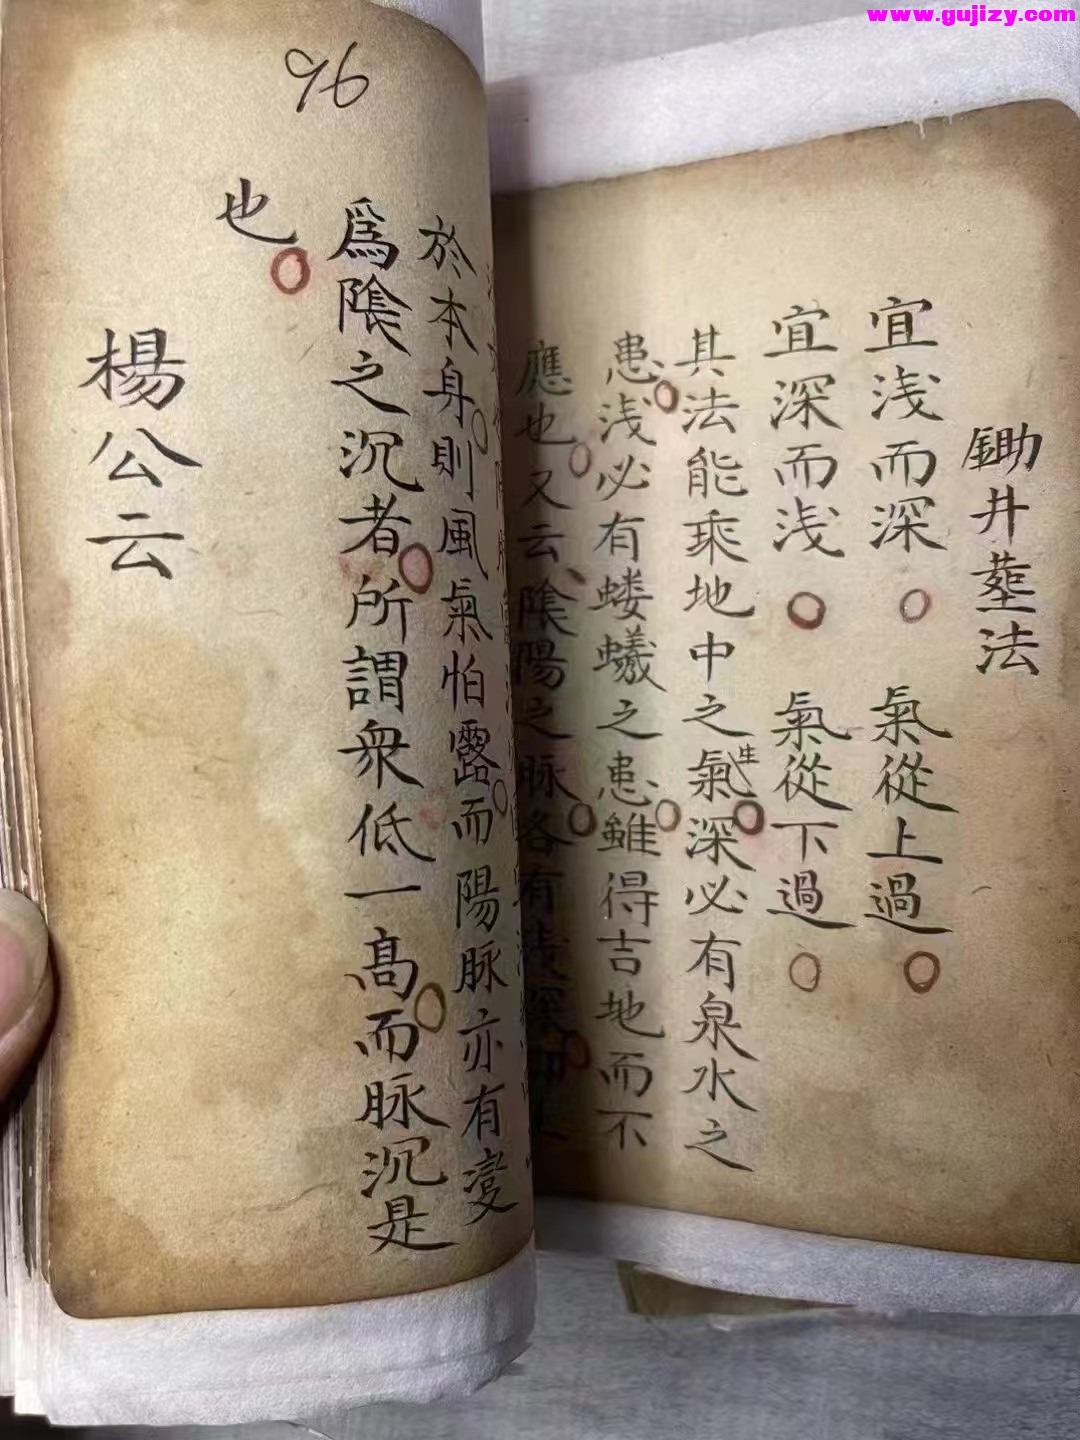 www.gujizy.com
鋤井塟法
宜浅而深 氣從上過
宜深而浅 氣從下過
其法能乘地中之生氣深必有泉水之
患浅必有蝼蟻之患雖得吉地而不
應也又云隂陽之脉各有浅深
96
於本身則風氣怕露而陽脉亦有变
為隂之沉者所謂衆低一高而脉沉是
也
楊公云